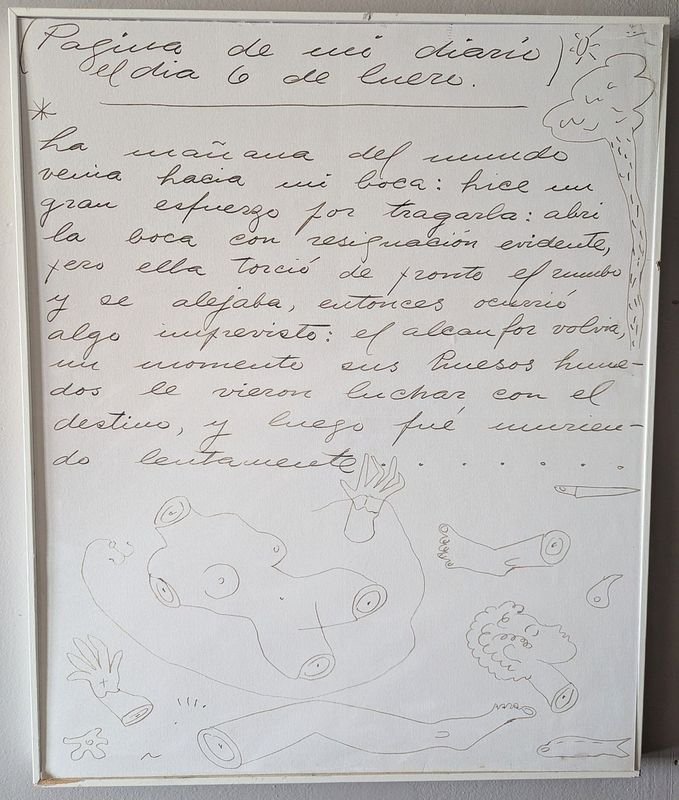 (Pagina de mi diario)
el dia 6 de Enero.
La mañana del mundo
venia hacia mi boca: hice un
gran esfuerzo por tragarla: abri
la boca con resignación evidente,
pero ella torció de pronto el rumbo
y se alejaba, entonces ocurrió
algo imprevisto: el alcanfor volvia,
un momento sus huesos hume-
dos le vieron luchar con el
destino, y luego fué murien-
do lentamente . . . . . . . .